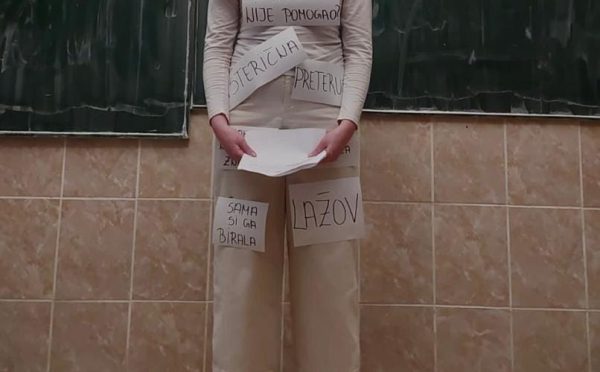 NIJE POMOGAO?
STERIČNA
PRETERU
SAMA
SI GA
BIRALA
LAŽOV